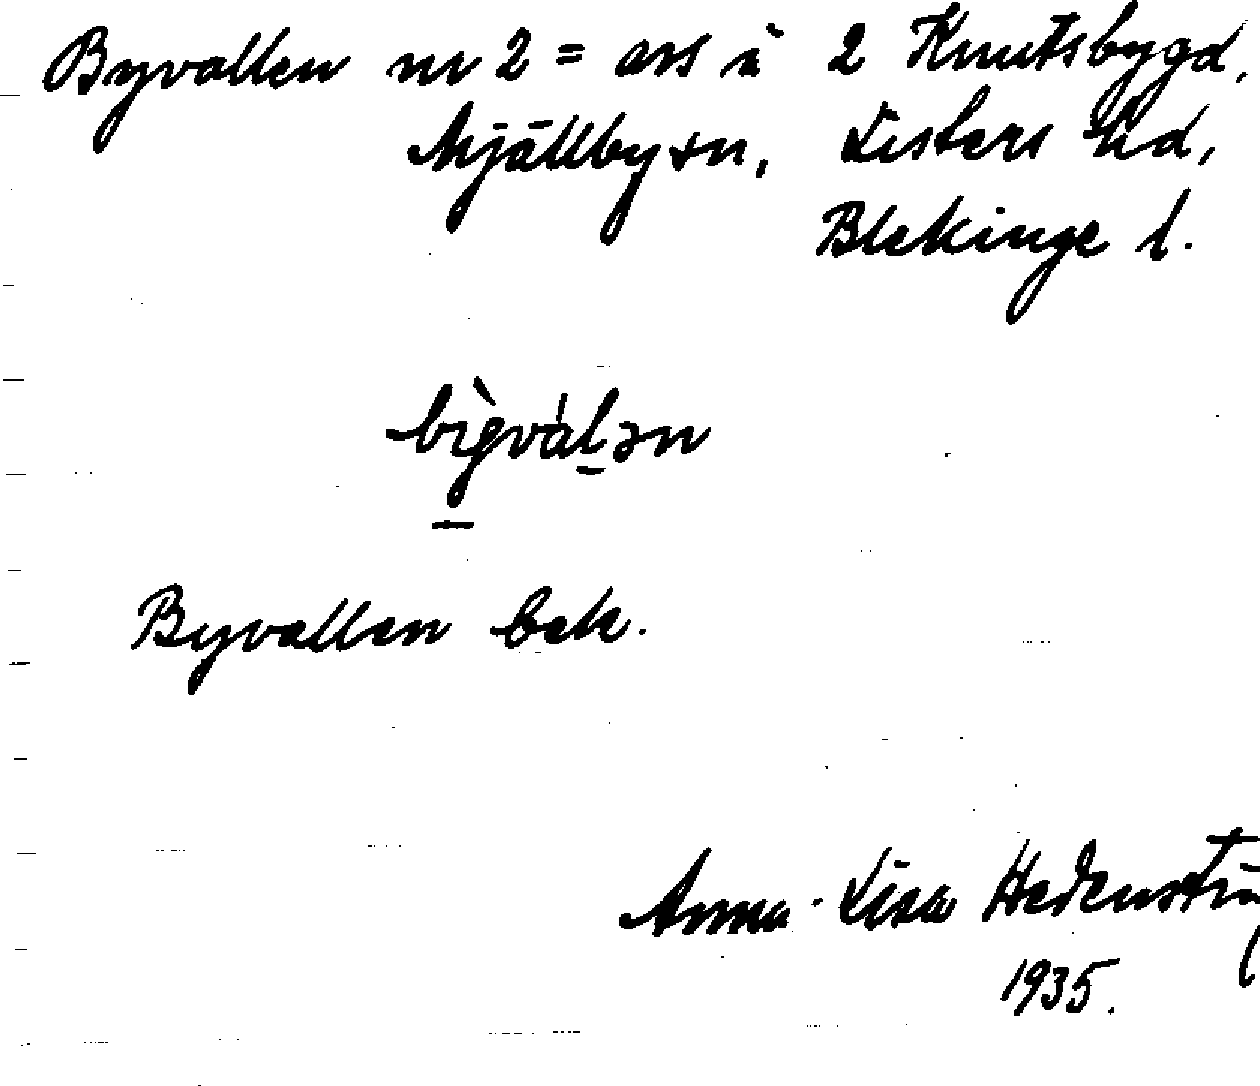 Byvallen nr 2 = ars i 2 Knutsbygd,
Mjällby sn, Listers hd,
Blekinge l.
Byvallen bek.
Anna-Lisa
1935.